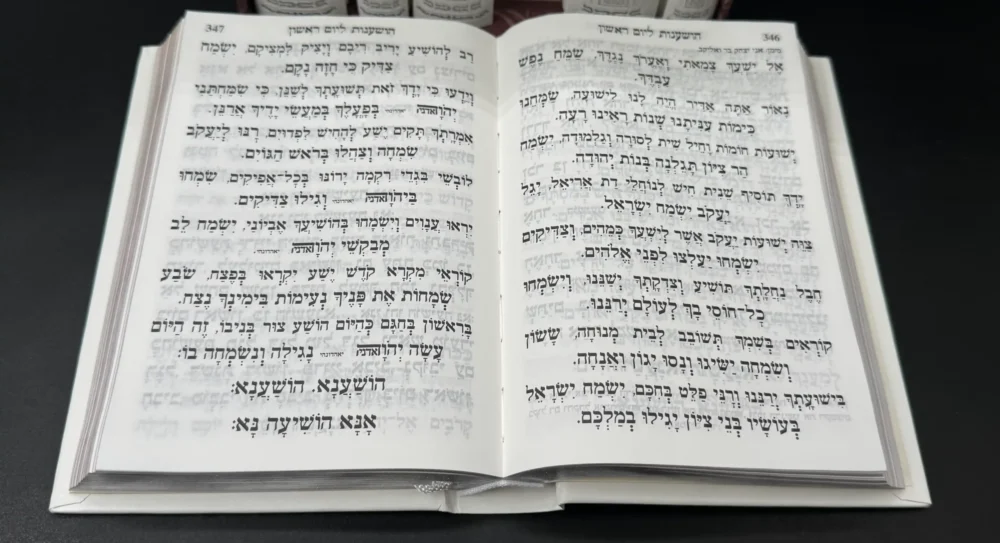 הושענות ליום ראשון 346
אֵל יִשְׁעֲךָ צָמֵאתִי וְאֶעֱרֹךְ נֶגְדֶּךָ, שַׂמֵּחַ נֶפֶשׁ
עַבְדֶּךָ.
נָאוֹר אַתָּה אַדִּיר הֱיֵה לָנוּ לִישׁוּעָה, שַׂמְּחֵנוּ
כִּימוֹת עִנִּיתָנוּ שְׁנוֹת רָאִינוּ רָעָה.
יְשׁוּעוֹת חוֹמוֹת וָחֵיל שִׁית לְסוּרָה וְגַלְמוּדָה, יִשְׂמַח
הַר צִיּוֹן תָּגֵלְנָה בְּנוֹת יְהוּדָה.
יָדְךָ תּוֹסִיף שֵׁנִית חִישׁ לְנוֹחֲלֵי דָת אֲרִיאֵל, יָגֵל
יַעֲקֹב יִשְׂמַח יִשְׂרָאֵל.
צַוֵּה יְשׁוּעוֹת יַעֲקֹב אֲשֶׁר לְיִשְׁעֲךָ כְּמֵהִים, וְצַדִּיקִים
יִשְׂמְחוּ יַעַלְצוּ לִפְנֵי אֱלֹהִים.
חֶבֶל נַחֲלָתְךָ תּוֹשִׁיעַ וְצִדְקָתְךָ יְשַׁנֵּנוּ, וְיִשְׂמְחוּ
כָל־חוֹסֵי בָךְ לְעוֹלָם יְרַנֵּנוּ.
קוֹרְאִים בְּשִׁמְךָ תְּשׁוֹבֵב לְבֵית מְנוּחָה, שָׂשׂוֹן
וְשִׂמְחָה יַשִּׂיגוּ וְנָסוּ יָגוֹן וַאֲנָחָה.
בִּישׁוּעָתְךָ יְרַנְּנוּ וְרָנֵּי פַלֵּט בְּחֻכָּם, יִשְׂמַח יִשְׂרָאֵל
בְּעוֹשָׂיו בְּנֵי צִיּוֹן יָגִילוּ בְמַלְכָּם.
הושענות ליום ראשון 347
רַב לְהוֹשִׁיעַ יָרִיב רִיבָם וְיָצִיק לִמְצִיקָם, יִשְׂמַח
צַדִּיק כִּי חָזָה נָקָם.
וְיֵדְעוּ כִּי יָדְךָ זֹאת תְּשׁוּעָתְךָ לְשַׁנֵּן, כִּי שִׂמַּחְתַּנִי
יְהֹוָה בְּפָעֳלֶךָ בְּמַעֲשֵׂי יָדֶיךָ אֲרַנֵּן.
אִמְרָתְךָ תָּקִים יֶשַׁע לְהָחִישׁ לִפְדוּיִם, רָנּוּ לְיַעֲקֹב
שִׂמְחָה וְצַהֲלוּ בְּרֹאשׁ הַגּוֹיִם.
לוֹבְשֵׁי בִּגְדֵי רִקְמָה יָרוֹנּוּ בְּכָל־אֲפִיקִים, שִׂמְחוּ
בַיהֹוָה וְגִילוּ צַדִּיקִים.
יִרְאוּ עֲנָוִים וְיִשְׂמָחוּ בְּהוֹשִׁיעֲךָ אֶבְיוֹנֵי, יִשְׂמַח לֵב
מְבַקְשֵׁי יְהֹוָה
קוֹרְאֵי מִקְרָא קֹדֶשׁ יֶשַׁע יִקְרְאוּ בְּפֶצַח, שֹׂבַע
שְׂמָחוֹת אֶת פָּנֶיךָ נְעִימוֹת בִּימִינְךָ נֶצַח.
בָּרִאשׁוֹן בְּחַגָּם כְּהַיּוֹם הוֹשַׁע צוּר בְּנִיבוֹ, זֶה הַיּוֹם
עָשָׂה יְהֹוָה נָגִילָה וְנִשְׂמְחָה בוֹ:
הוֹשַׁעְנָא, הוֹשַׁעֲנָא:
אָנָּא הוֹשִׁיעָה נָּא: